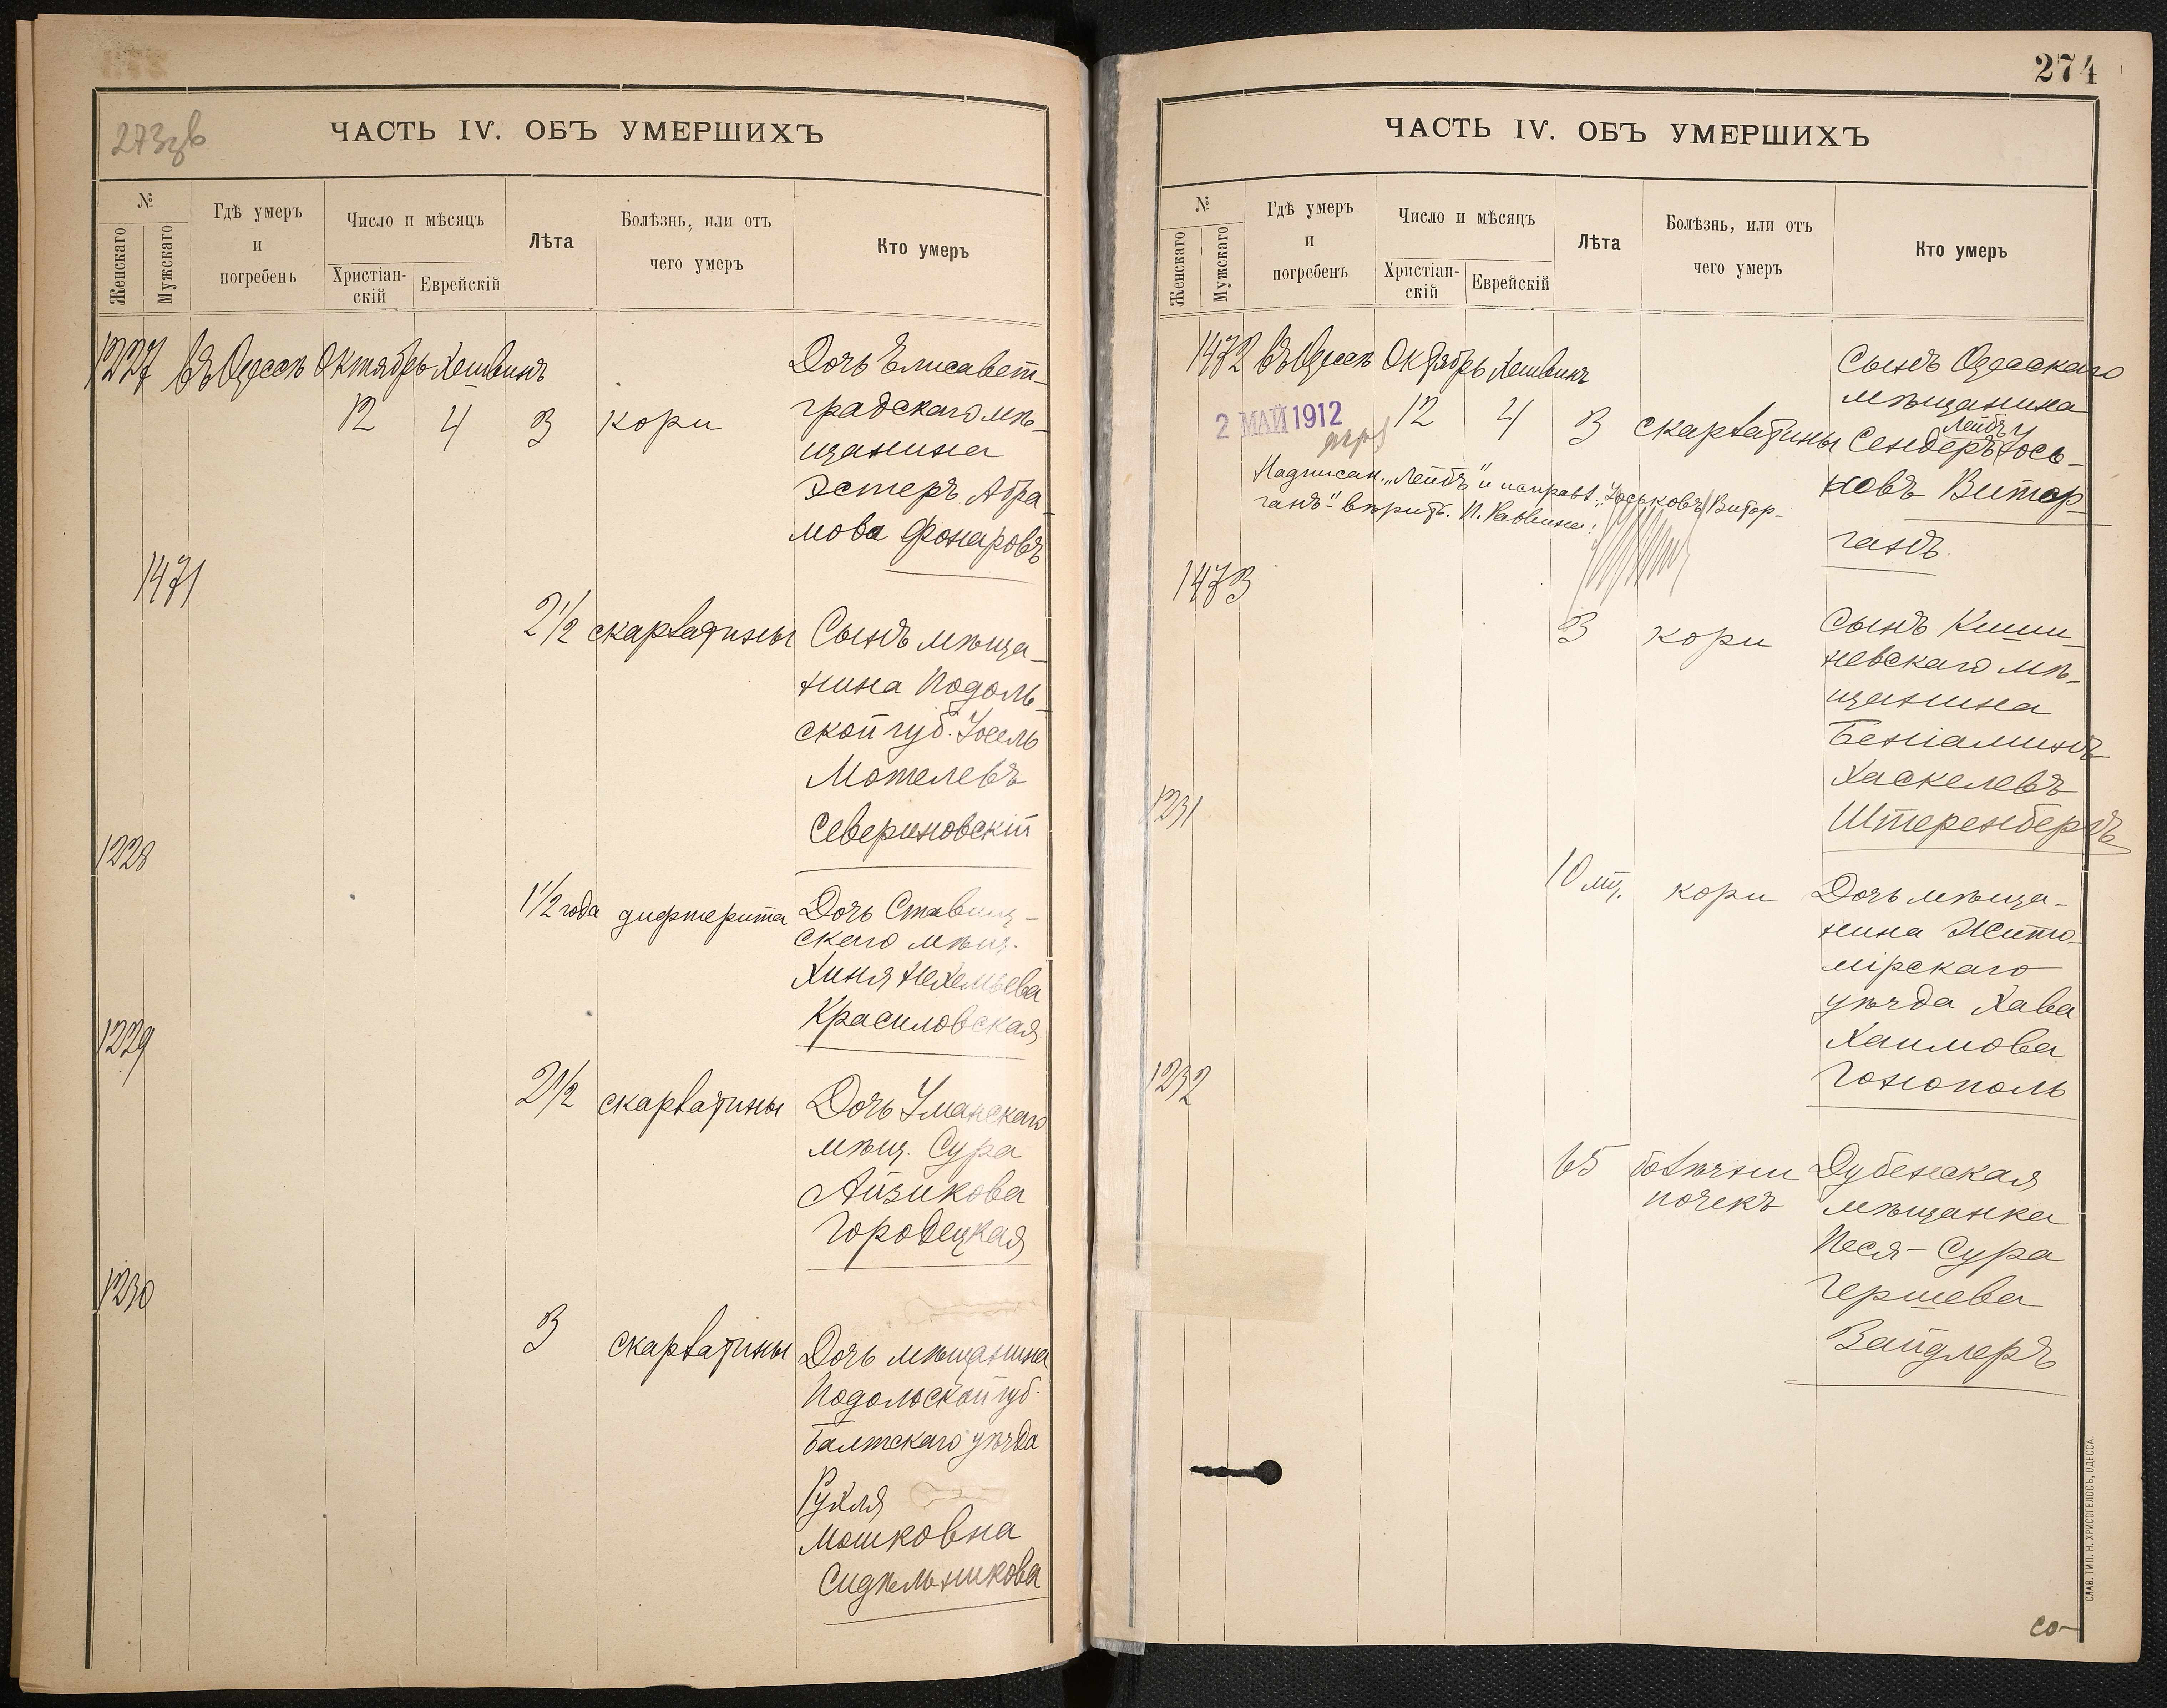 273об
ЧАСТЬ IV. ОБЪ УМЕРШИХЪ
№
Женскаго
Мужскаго
Гдѣ умеръ
и
погребень
Число и мѣсяцъ
Христіан-
скій
Еврейскій
Лѣта
Болѣзнь, или отъ
чего умеръ
Кто умеръ
1227 въ Одессѣ Октябрь Хешвинъ
12 4 3 кори
Дочь Елисавет-
градскаго мѣ-
щанина
Эстеръ Абра-
мова Фонаровъ
1471
2 1/2 скарлатины
Сынъ мѣща-
нина Подоль-
ской губ. Іосель
Мотелевъ
Севериновскій
1228
1 1/2 года дифтерита
Дочь Ставищ-
скаго мѣщ.
Хиня Нехемьева
Красиловская
1229
2 1/2 скарлатины
Дочь Уманскаго
мѣщ. Сура
Айзикова
Городецкая
1230
3 скарлатины
Дочь мѣщанина
Подольской губ.
Балтскаго уѣзда
Рухля
Мошковна
Сидѣльникова
274
ЧАСТЬ IV. ОБЪ УМЕРШИХЪ
№
Женскаго
Мужскаго
Гдѣ умеръ
и
погребенъ
Число и мѣсяцъ
Христіан-
скій
Еврейскій
Лѣта
Болѣзнь, или отъ
чего умеръ
Кто умеръ
1472 въ Одессѣ Октябрь Хешвинъ
2 МАЙ 1912
12 4 3 скарлатины
Сынъ Одесскаго
мѣщанина
Лейбъ
Сендеръ Іось-
ковъ Витор-
ганъ
Надписан. „Лейбъ" и исправл. „Іоськовъ Витор-
ганъ" вѣрить. И. Раввина:
1473
3 кори
Сынъ Киши-
невскаго мѣ-
щанина
Беніаминъ
Хаскелевъ
Штеренбергъ
1231
10 мц. кори
Дочь мѣща-
нина Жито-
мірскаго
уѣзда Хава
Хаимова
Гонополь
1232
65 болѣзни
почекъ
Дубенская
мѣщанка
Песя-Сура
Гершева
Вайдлеръ
СЛАВ. ТИП. Н. ХРИСОГЕЛОСЪ, ОДЕССА.
со-